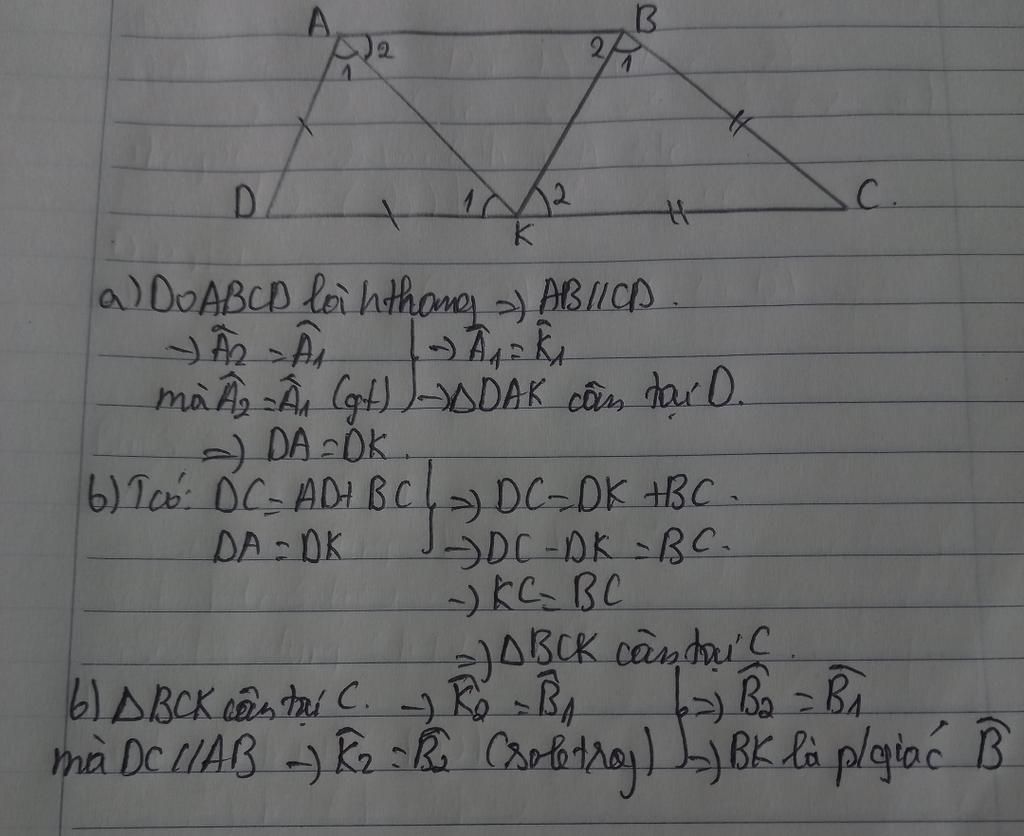 A B
2 2
1 1
D 1 2 C.
K
a) Do ABCD là hthang => AB//CD.
→ Â2 = Â1 → Â1 = K̂1
mà Â2 = Â1 (gt) → ΔDAK cân tại D.
=> DA = DK.
b) Tcó: DC = AD + BC => DC = DK + BC.
DA = DK → DC - DK = BC.
→ KC = BC
=> ΔBCK cân tại C.
b) ΔBCK cân tại C. → K̂2 = B̂1 => B̂2 = B̂1
mà DC // AB → K̂2 = B̂2 (soletrog) → BK là p/giác B̂